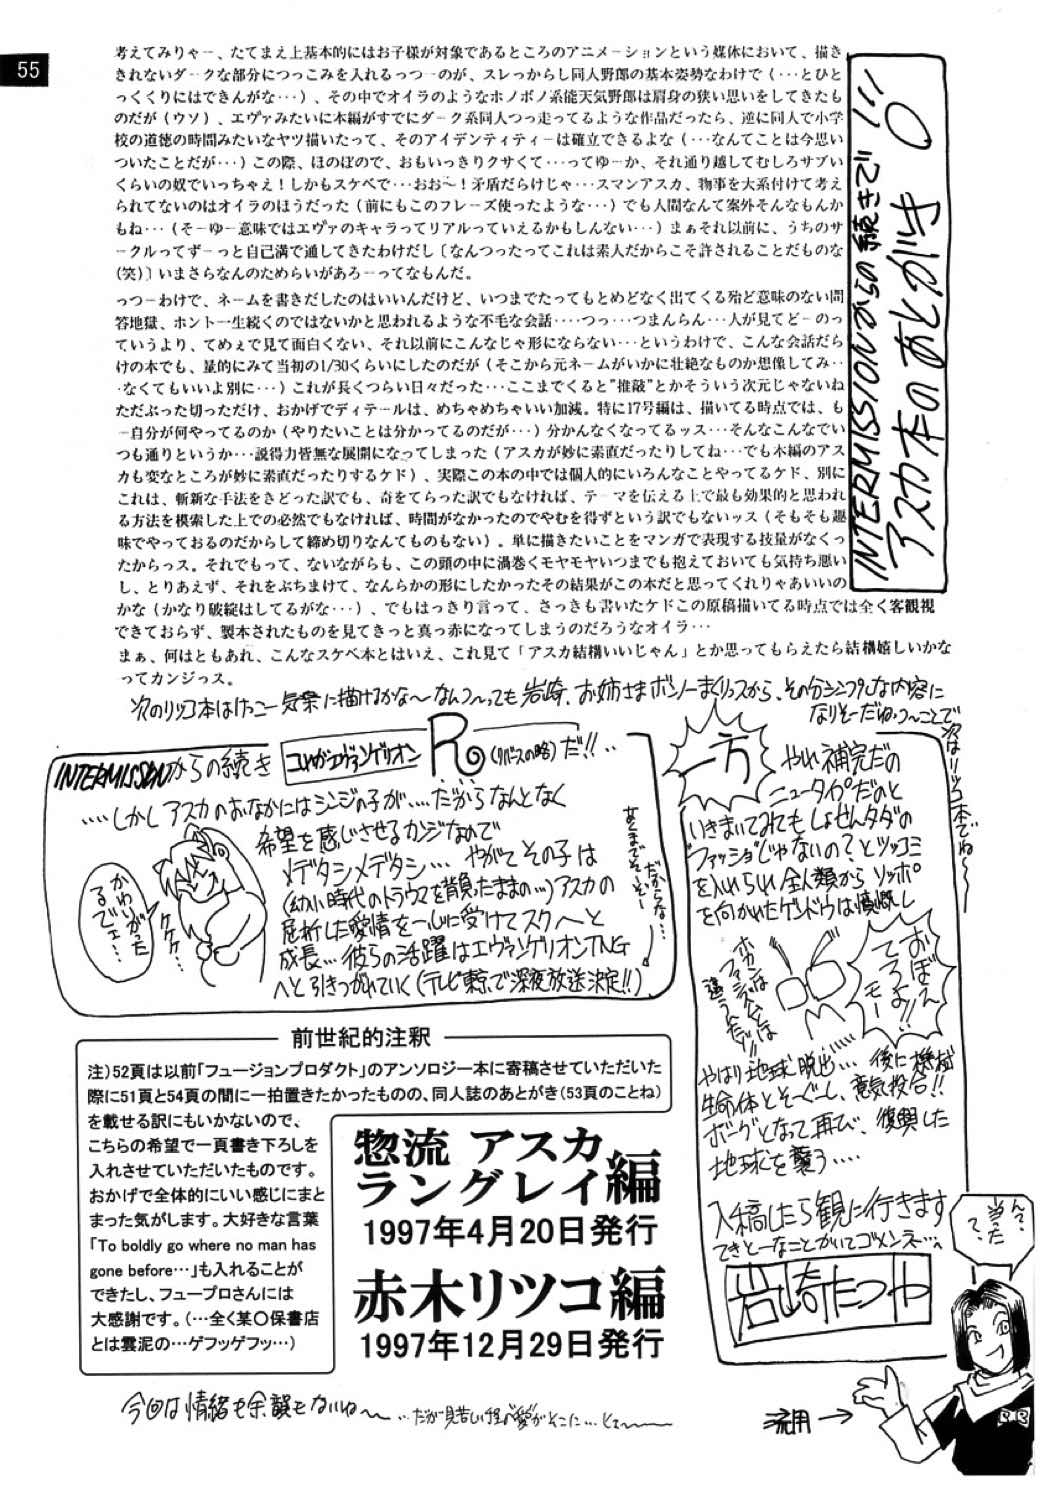 55
INTERMISSIONからの続きで!!
アスカ本のあとがき
考えてみりゃー、たてまえ上基本的にはお子様が対象であるところのアニメーションという媒体において、描き
きれないダークな部分につっこみを入れるっつーのが、スレっからし同人野郎の基本姿勢なわけで（…とひと
っくくりにはできんがな…）、その中でオイラのようなホノボノ系能天気野郎は肩身の狭い思いをしてきたも
のだが（ウソ）、エヴァみたいに本編がすでにダーク系同人つっ走ってるような作品だったら、逆に同人で小学
校の道徳の時間みたいなヤツ描いたって、そのアイデンティティーは確立できるよな（…なんてことは今思い
ついたことだが…）この際、ほのぼので、おもいっきりクサくて…ってゆーか、それ通り越してむしろサブい
くらいの奴でいっちゃえ！しかもスケベで…おお～！矛盾だらけじゃ…スマンアスカ、物事を大系付けて考え
られてないのはオイラのほうだった（前にもこのフレーズ使ったような…）でも人間なんて案外そんなもんか
もね…（そーゆー意味ではエヴァのキャラってリアルっていえるかもしんない…）まぁそれ以前に、うちのサ
ークルってずーっと自己満で通してきたわけだし〔なんつったってこれは素人だからこそ許されることだものな
(笑)〕いまさらなんのためらいがあろーってなもんだ。
っつーわけで、ネームを書きだしたのはいいんだけど、いつまでたってもとめどなく出てくる殆ど意味のない問
答地獄、ホント一生続くのではないかと思われるような不毛な会話‥‥つっ…つまんらん…人が見てどーのっ
ていうより、てめぇで見て面白くない、それ以前にこんなじゃ形にならない…というわけで、こんな会話だら
けの本でも、量的にみて当初の1/30くらいにしたのだが（そこから元ネームがいかに壮絶なものか想像してみ‥
‥なくてもいいよ別に…）これが長くつらい日々だった…ここまでくると"推敲"とかそういう次元じゃないね
ただぶった切っただけ、おかげでディテールは、めちゃめちゃいい加減。特に17号編は、描いてる時点では、も
ー自分が何やってるのか（やりたいことは分かってるのだが…）分かんなくなってるッス…そんなこんなでい
つも通りというか…説得力皆無な展開になってしまった（アスカが妙に素直だったりしてね…でも本編のアス
カも変なところが妙に素直だったりするケド）、実際この本の中では個人的にいろんなことやってるケド、別に
これは、斬新な手法をきどった訳でも、奇をてらった訳でもなければ、テーマを伝える上で最も効果的と思われ
る方法を模索した上での必然でもなければ、時間がなかったのでやむを得ずという訳でもないッス（そもそも趣
味でやっておるのだからして締め切りなんてものもない）。単に描きたいことをマンガで表現する技量がなくっ
たからっス。それでもって、ないながらも、この頭の中に渦巻くモヤモヤいつまでも抱えておいても気持ち悪い
し、とりあえず、それをぶちまけて、なんらかの形にしたかったその結果がこの本だと思ってくれりゃあいいの
かな（かなり破綻はしてるがな…）、でもはっきり言って、さっきも書いたケドこの原稿描いてる時点では全く客観視
できておらず、製本されたものを見てきっと真っ赤になってしまうのだろうなオイラ…
まぁ、何はともあれ、こんなスケベ本とはいえ、これ見て「アスカ結構いいじゃん」とか思ってもらえたら結構嬉しいかな
ってカンジっス。
次のリツコ本はけっこー気楽に描けるかな～なんつっても岩崎、お姉さまボンノーまくりっスから、その分シンプルな内容に
なりそーだね・つーことで
次はリツコ本でね～
INTERMISSIONからの続き
エヴァンゲリオン
R
(リバースの略)だ!!‥
‥‥しかしアスカのおなかにはシンジの子が‥‥だからなんとなく
希望を感じさせるカンジなので
メデタシメデタシ… やがてその子は
(幼い時代のトラウマを背負たままの…)アスカの
屈折した愛情を一心に受けてスクスクと
成長…彼らの活躍はエヴァンゲリオンTNG
へと引きつがれていく(テレビ東京で深夜放送決定!!)
だからな…
かわいがった
るでェ…
ケケケ…
一方
やれ補完だの
ニュータイプだのと
いきまいてみてもしょせんタダの
ファッショじゃないの?とツッコミ
を入れられ全人類からソッポ
を向かれたゲンドウは憤慨し
おぼえ
てろよ!!
モー
ホカンは
ファシズムとは
違うんだい!!
やはり地球脱出…… 後に機械
生命体とそーぐーし、意気投合!!
ボーグとなって再び、復興した
地球を襲う‥‥
入稿したら観に行きます
てきとーなことかいてゴメンネー…
岩崎たつや
んで、
当った
て、
流用→
前世紀的注釈
注）52頁は以前「フュージョンプロダクト」のアンソロジー本に寄稿させていただいた
際に51頁と54頁の間に一拍置きたかったものの、同人誌のあとがき（53頁のことね）
を載せる訳にもいかないので、
こちらの希望で一頁書き下ろしを
入れさせていただいたものです。
おかげで全体的にいい感じにまと
まった気がします。大好きな言葉
「To boldly go where no man has
gone before…」も入れることが
できたし、フュープロさんには
大感謝です。（…全く某〇保書店
とは雲泥の…ゲフッゲフッ…）
惣流 アスカ
ラングレイ編
1997年4月20日発行
赤木リツコ編
1997年12月29日発行
今回は情緒も余韻もないね～ …だが見苦しい程の愛がそこに…